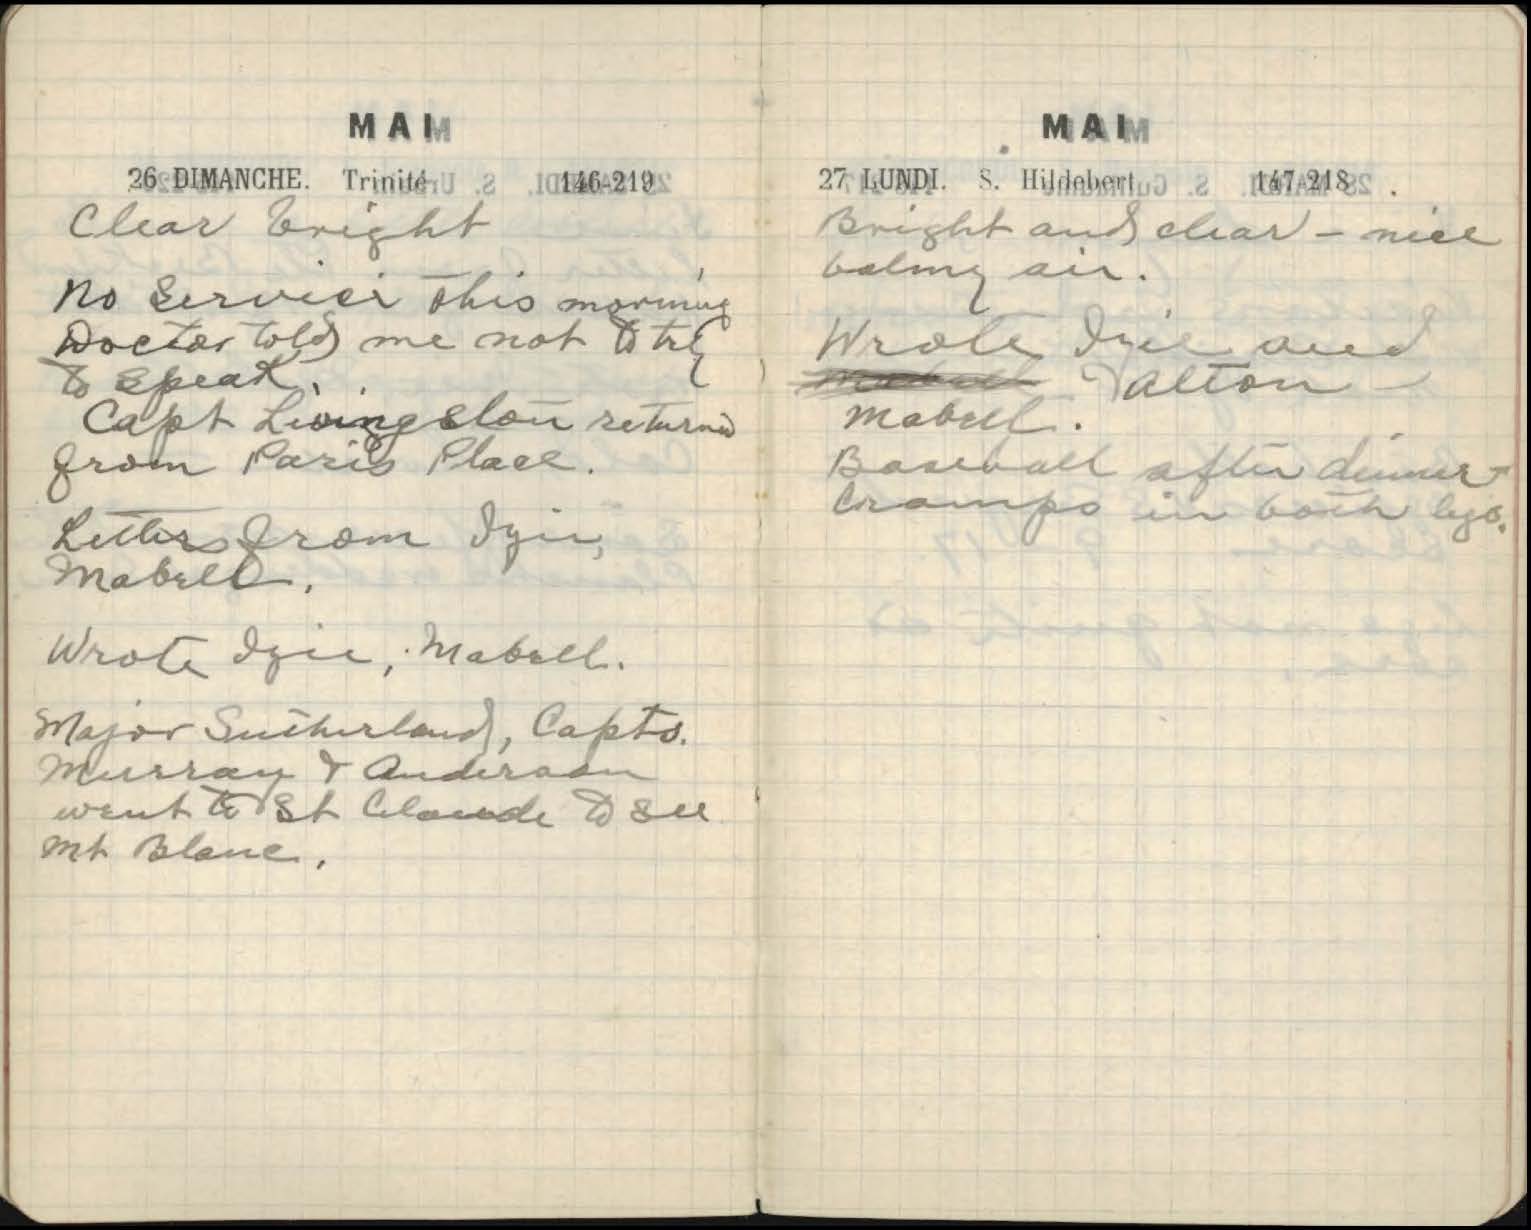 MAI
26 DIMANCHE. Trinité 146-219
Clear bright
No Service this morning
Doctor told me not to try
to speak.
Capt Livingston returned
from Paris Place.
Letters from Izie,
Mabell.
Wrote Izie, Mabell.
Major Sutherland, Capts.
Murray & Anderson
went to St Claude to see
Mt Blanc.
MAI
27 LUNDI. S. Hildebert 147-218
Bright and clear – nice
balmy air.
Wrote Izie and
Alton –
Mabell.
Baseball after dinner –
Cramps in both legs.